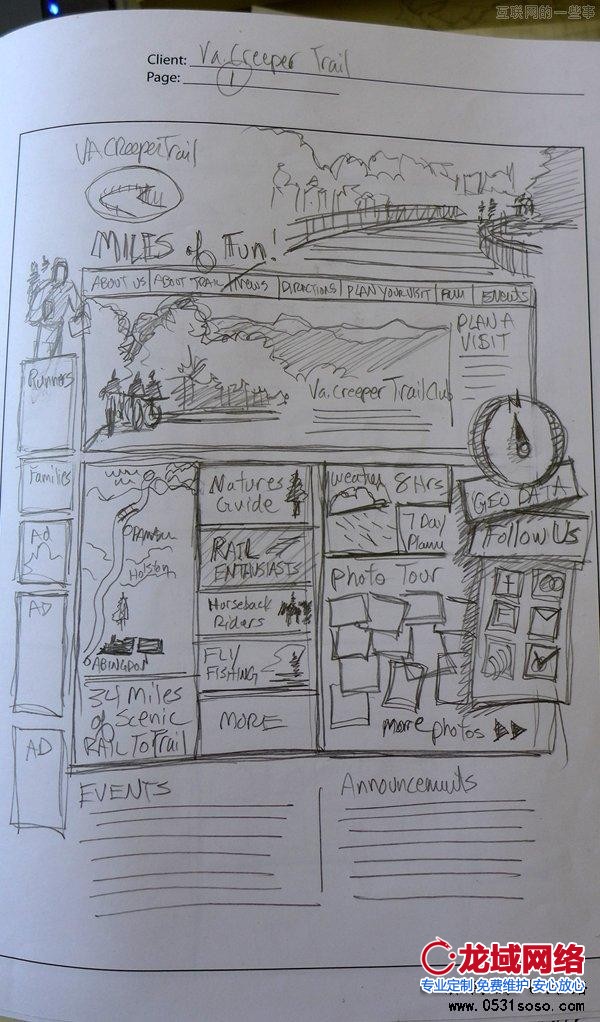 互联网的一些事
Client: Va. Creeper Trail
Page: 1
VA CReeperTrail
MILES of Fun!
ABOUT US
ABOUT TRAIL
NEWS
DIRECTIONS
PLAN YOUR VISIT
FUN
EVENTS
PLAN A
VISIT
Va. Creeper Trail Club
N
Runners
Families
Ad
AD
AD
Holston
ABINGDON
34 Miles
of Scenic
RAIL To Trail
Natures
Guide
RAIL
ENTHUSIASTS
Horseback
Riders
FLY
FISHING
MORE
Weather
8 Hrs
7 Day
GEO DATA
Follow Us
Photo Tour
more photos
EVENTS
Announcements
龙域网络
专业定制 免费维护 安心放心
www.0531soso.com